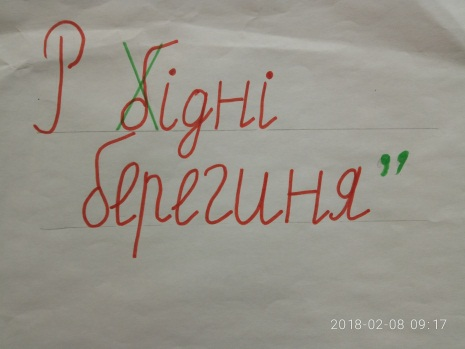 Р бідні
берегиня”
2018-02-08 09:17